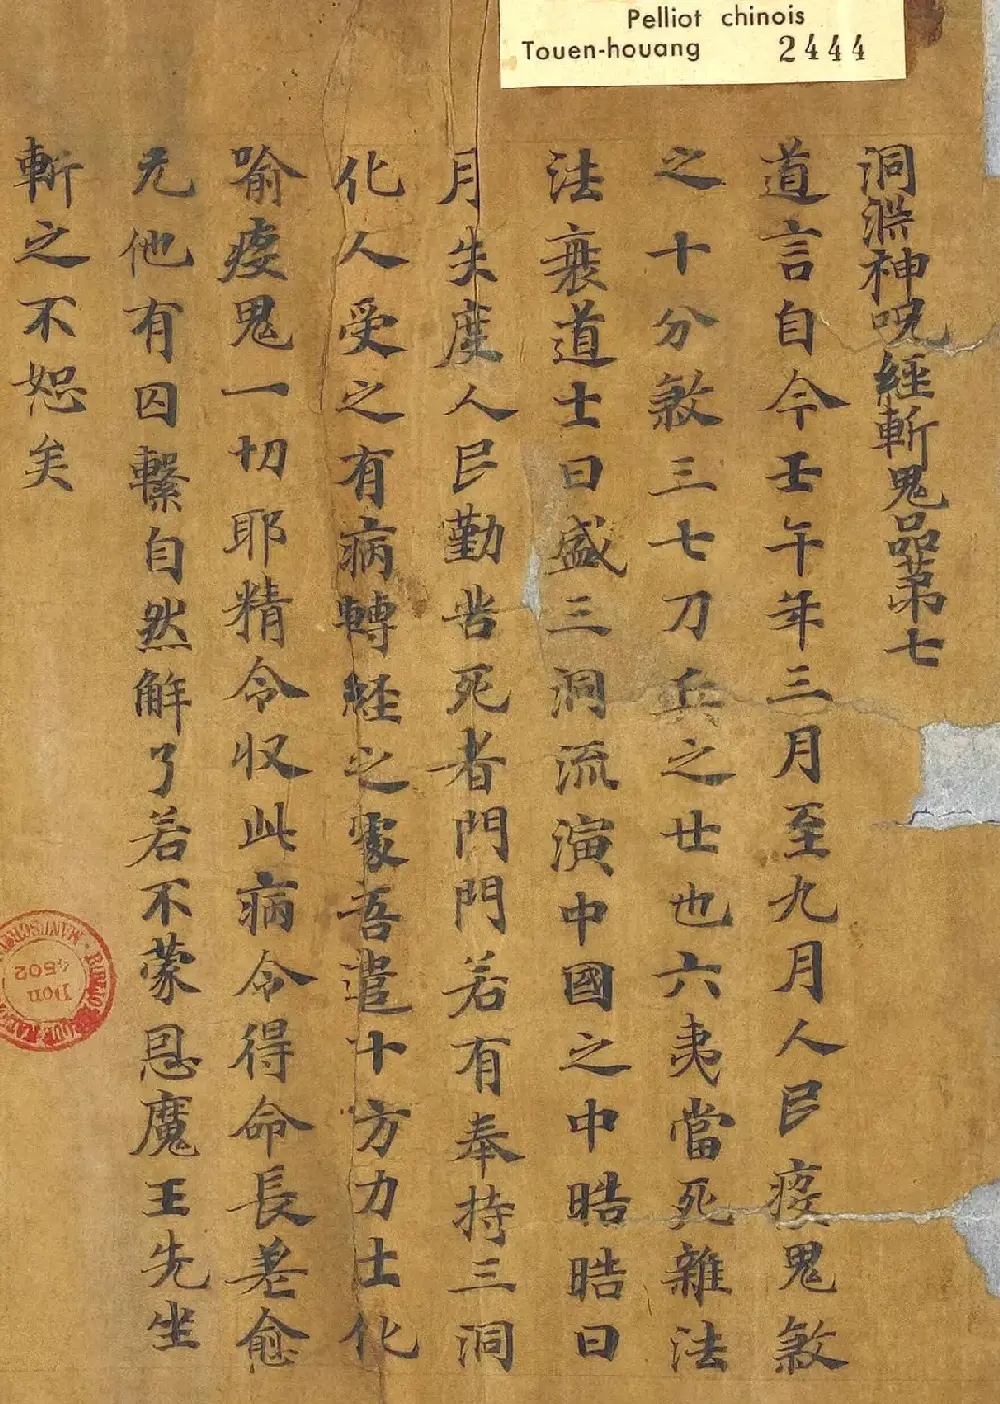 Pelliot chinois
Touen-houang 2444
洞淵神呪經斬鬼品第七
道言自今壬午年三月至九月人民疫鬼煞
之十分煞三七刀兵之世也六夷當死雜法
法衰道士日盛三洞流演中國之中晧晧日
月失度人民勤苦死者門門若有奉持三洞
化人受之有病轉經之家吾遣十方力士化
喻疫鬼一切耶精令收此病令得命長差愈
无他有囚繫自然解了若不蒙恩魔王先坐
斬之不恕矣
Don
4502